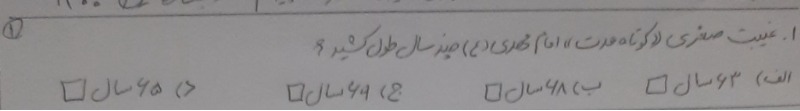 ۱. غیبت صغری (کوتاه مدت) امام مهدی (ع) چند سال طول کشید؟
الف) ۶۳ سال □ ب) ۶۸ سال □ ج) ۶۹ سال □ د) ۶۵ سال □